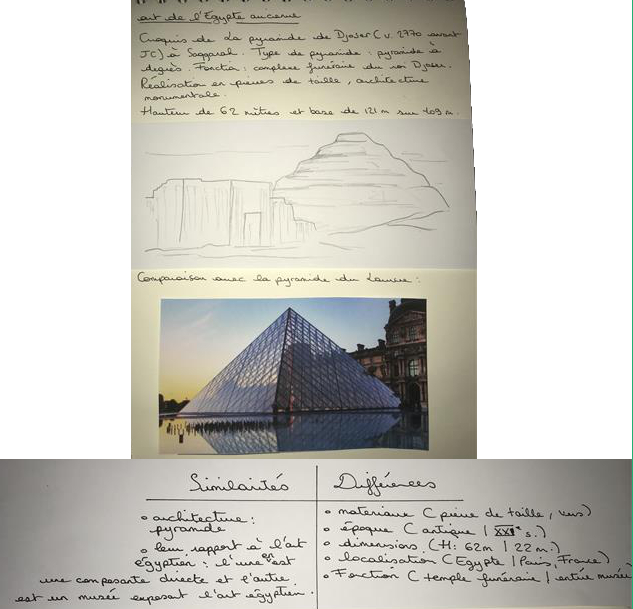 art de l'Egypte ancienne
Croquis de La pyramide de Djoser (v. 2770 avant
JC) à Saqqarah. Type de pyramide : pyramide à
degrés Fonction : complexe funéraire du roi Djoser.
Réalisation en pierres de taille, architecture
monumentale.
Hauteur de 62 mètres et base de 121 m sur 109 m.
Comparaison avec la pyramide du Louvre :
Similarités
architecture :
pyramide
leur rapport à l'art
égyptien : l'une en est
une composante directe et l'autre
est un musée exposant l'art égyptien.
Différences
materiaux (pierre de taille, verre)
époque (antique | s.)
dimensions (H: 62m | 22 m.)
localisation (Egypte | Paris, France)
Fonction (temple funéraire | entrée musée